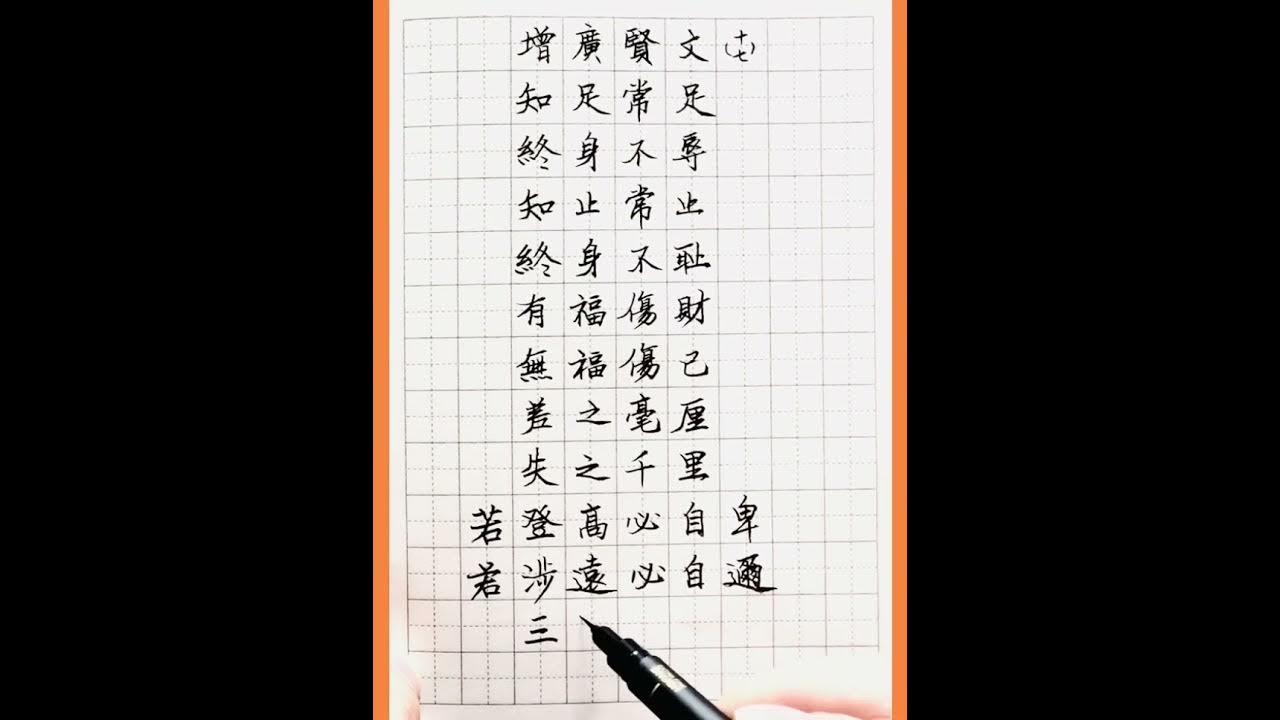 增廣賢文(十七)
知足常足
終身不辱
知止常止
終身不耻
有福傷財
無福傷己
差之毫厘
失之千里
若登高必自卑
若涉遠必自邇
三